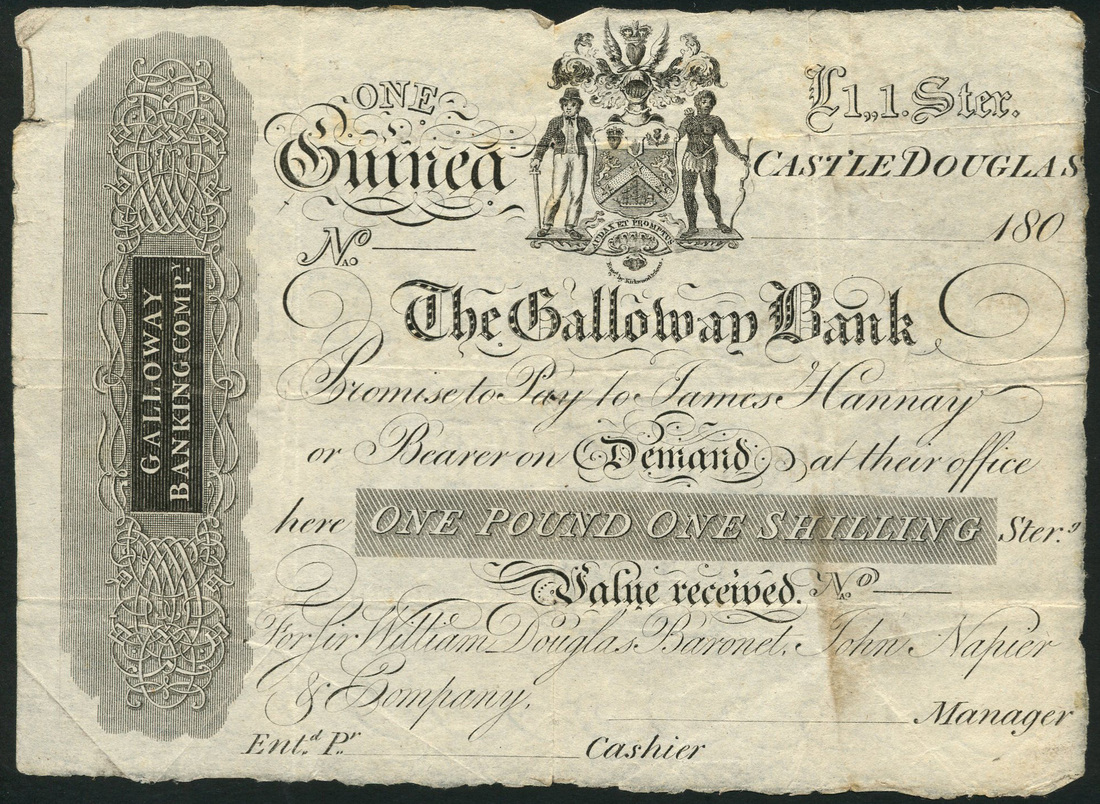 ONE
Guinea
£1,,1. Ster.
CASTLE DOUGLAS
No.
180
AUDAX ET PROMPTUS
The Galloway Bank
Promise to Pay to James Hannay
or Bearer on Demand at their office
here ONE POUND ONE SHILLING Ster.g
Value received. No.
For Sir William Douglas Baronet, John Napier
& Company.
Manager
Ent.d P.r
Cashier
GALLOWAY
BANKING COMP.Y